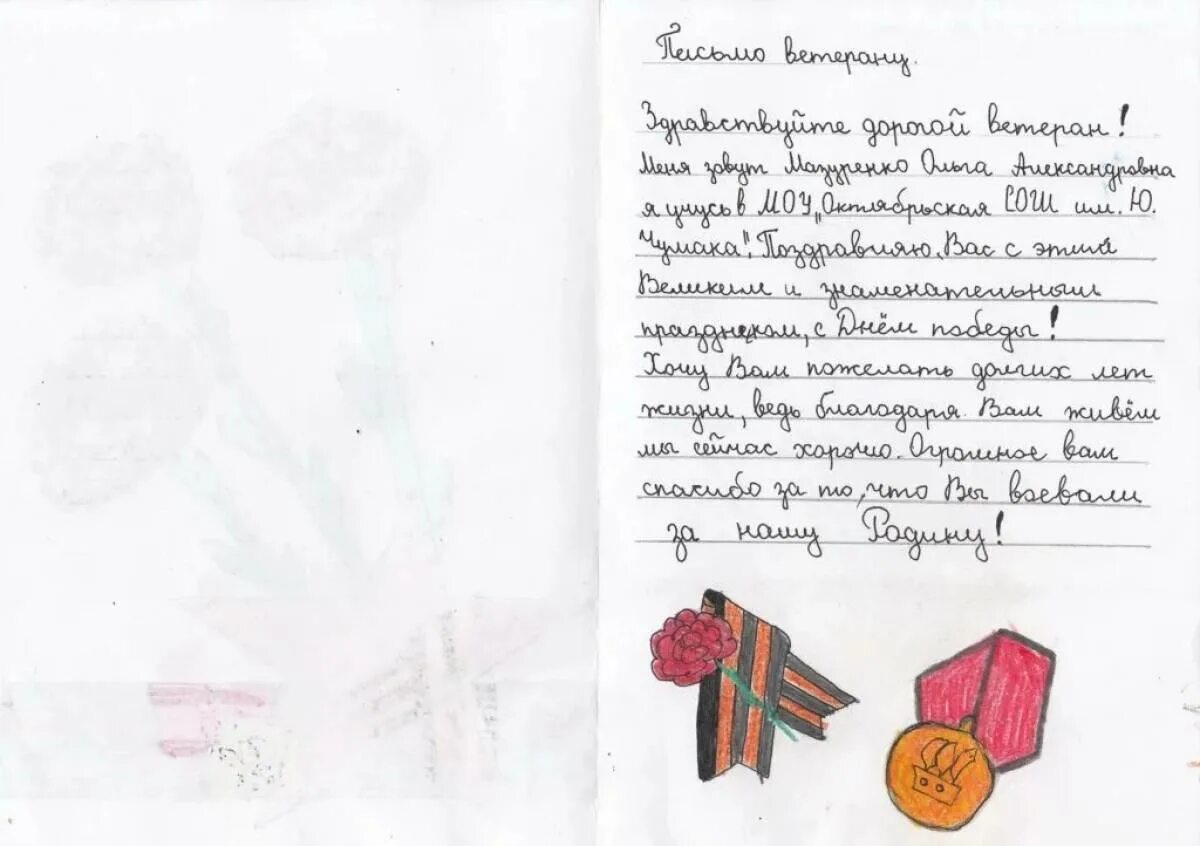 Письмо ветерану.
Здравствуйте дорогой ветеран!
Меня зовут Мазуренко Ольга Александровна
я учусь в МОУ „Октябрьская СОШ им. Ю.
Чумака". Поздравляю Вас с этим
Великим и знаменательным
праздником, с Днём победы!
Хочу Вам пожелать долгих лет
жизни, ведь благодаря Вам живём
мы сейчас хорошо. Огромное вам
спасибо за то, что Вы воевали
за нашу Родину!